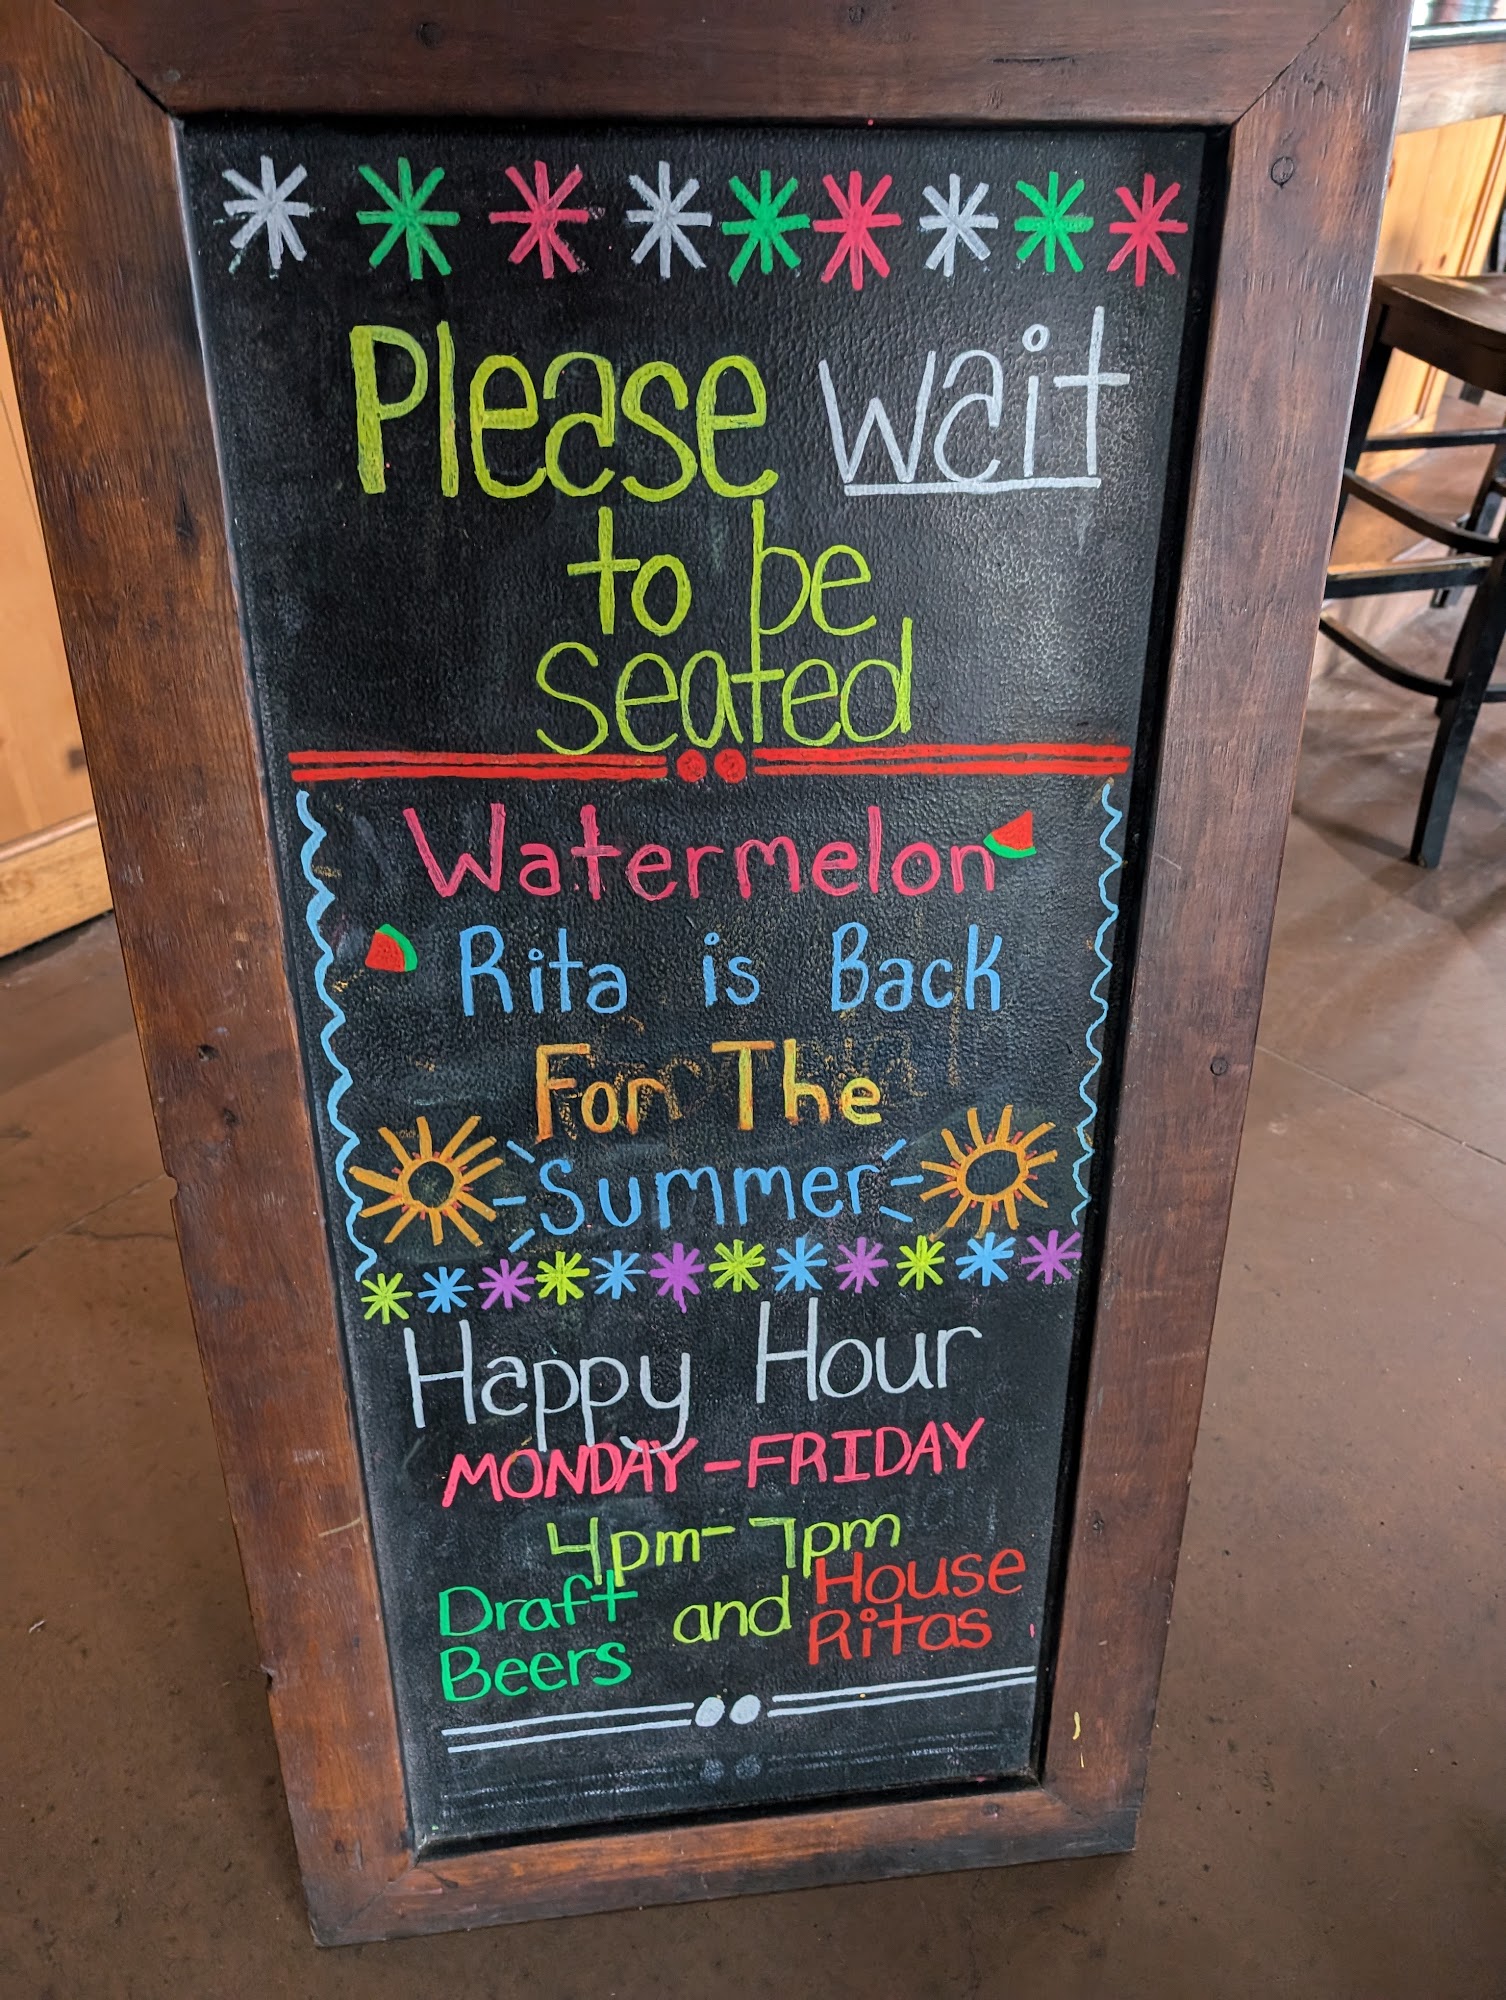 Please wait
to be
seated
Watermelon
Rita is Back
For The
Summer
Happy Hour
MONDAY-FRIDAY
4pm-7pm
Draft Beers and House Ritas